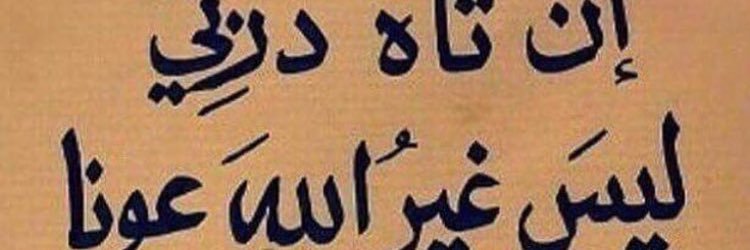 إن تاه دربِي
ليسَ غيرُ اللهَ عونا